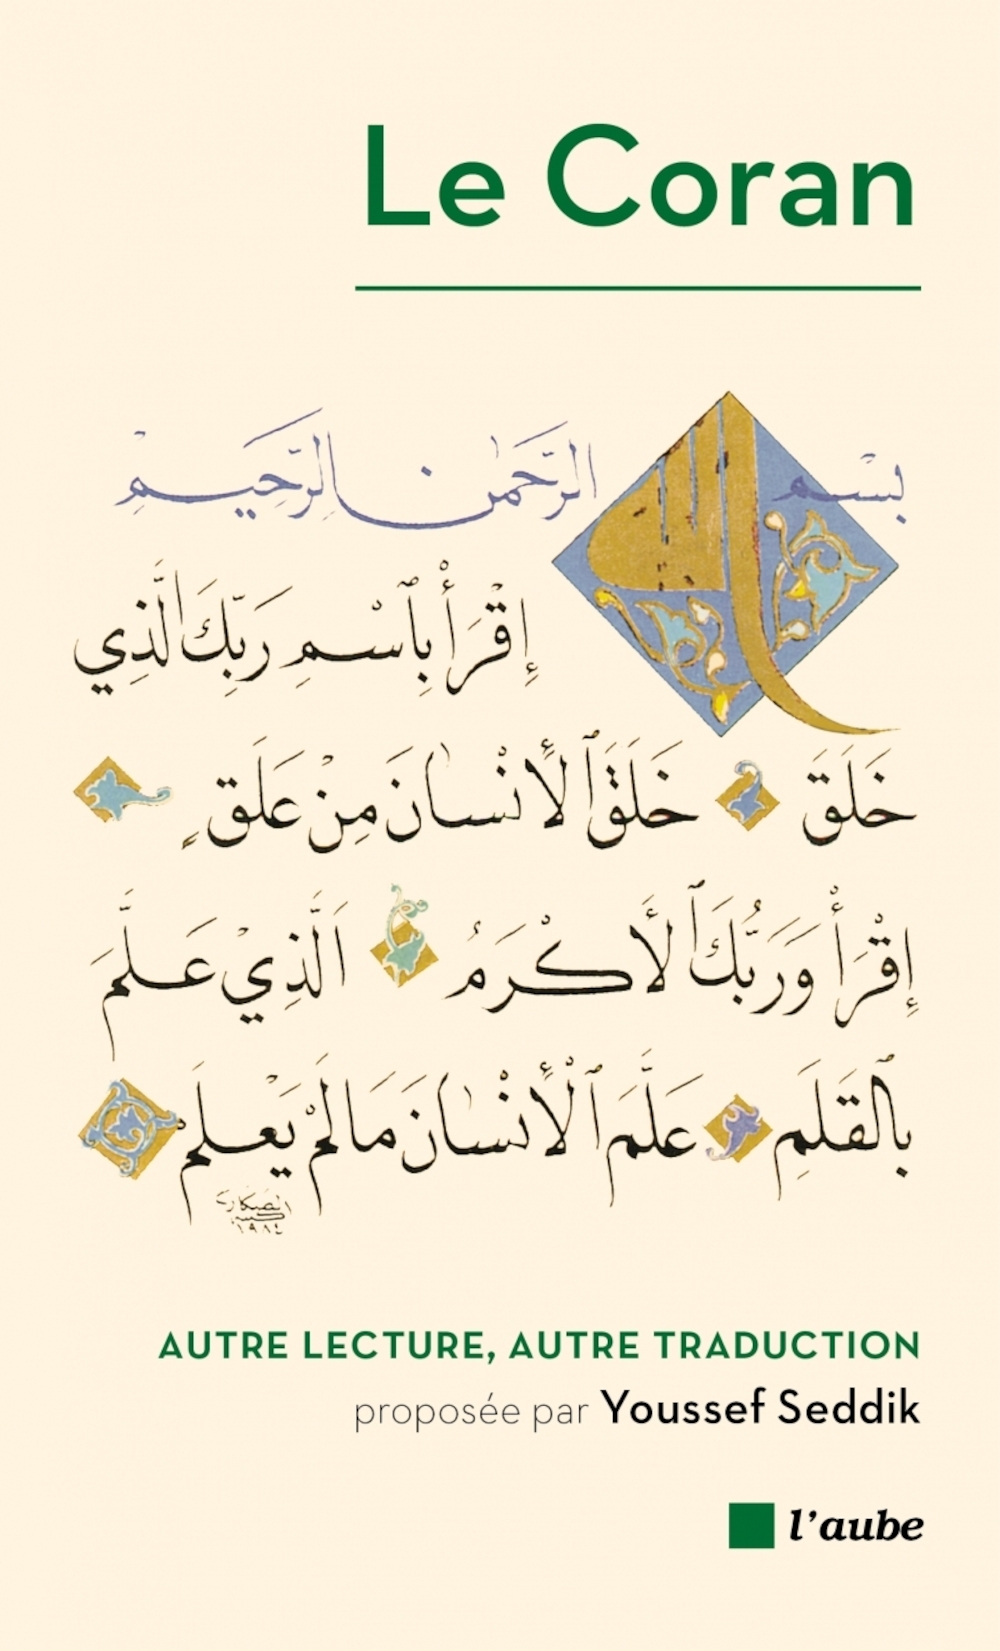 Le Coran
بسم الله الرَّحمٰن الرَّحيم
إِقْرَأْ بِٱسْمِ رَبِّكَ الَّذِي
خَلَقَ خَلَقَ ٱلأنْسَانَ مِنْ عَلَقٍ
إِقْرَأْ وَرَبُّكَ ٱلأَكْرَمُ اَلَّذِيْ عَلَّمَ
بِٱلْقَلَمِ عَلَّمَ ٱلْأِنْسَانَ مَا لَمْ يَعْلَمْ
الصكار
١٩٨٤
AUTRE LECTURE, AUTRE TRADUCTION
proposée par Youssef Seddik
l'aube